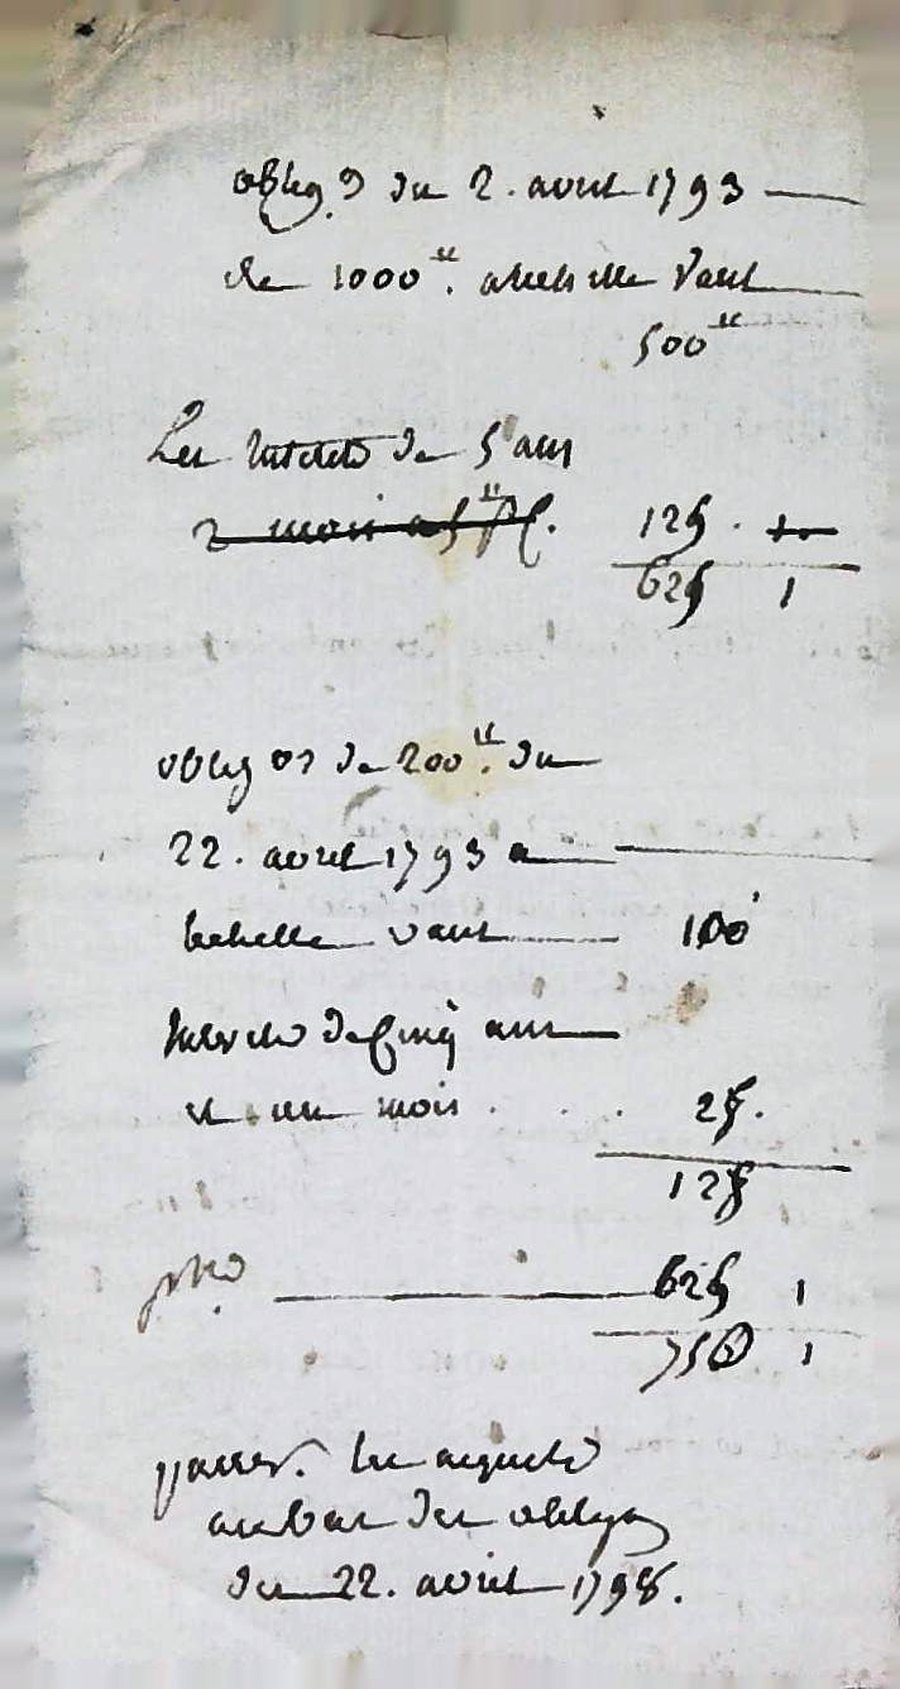 oblig.on du 2. avril 1793
de 1000ᵗᵗ. alechelle vaut
500ᵗᵗ
Les Interets de 5 ans
2 mois a 5ᵗᵗ p C. 125. 1.
625 1
oblig on de 200ᵗᵗ. du
22. avril 1793 a
lechelle vaut 100
Interets de Cinq ans
et un mois . . . 25.
125
625 1
750 1
passer. les aquets
au bas des obligon
du 22. avril 1798.